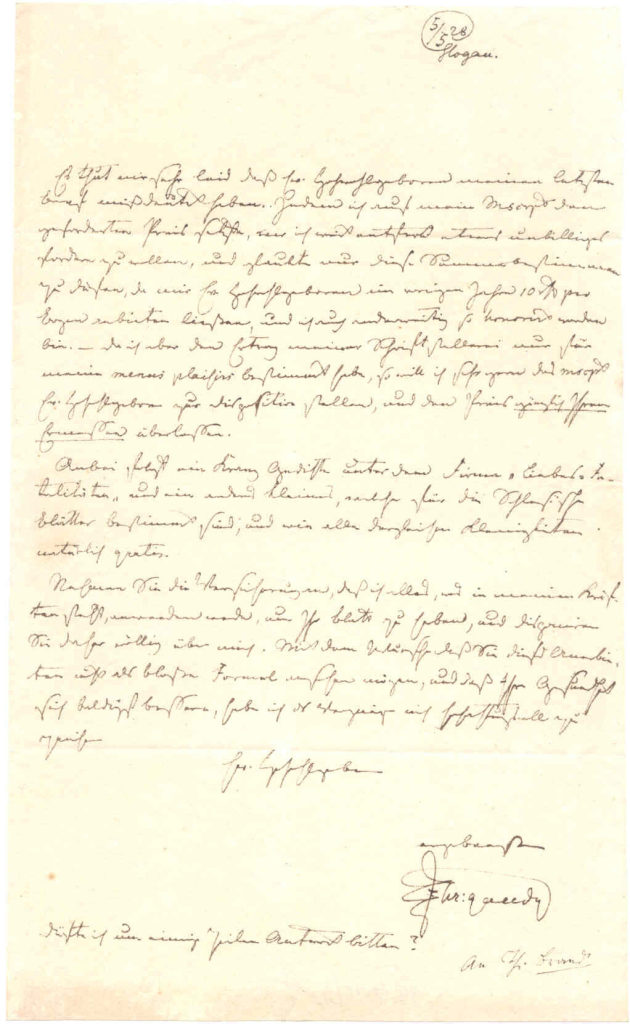 5/5 28
Glogau.
Es thut mir sehr leid daß Ew. Hochwohlgeboren meinen letzten
Brief mißdeutet haben. Indem ich auf mein Mscrpt den
geforderten Preis setzte, war ich weit entfernt etwas unbilliges
fordern zu wollen, und glaubte nur diese Summe bestimmen
zu dürfen, da mir Ew. Hochwohlgeboren im vorigen Jahre 10 rth per
Bogen anbieten ließen, und ich auch anderweitig so honorirt worden
bin. – da ich aber den Ertrag meiner Schriftstellerei nur für
meine menus plaisirs bestimmt habe, so will ich sehr gern das Mscrpt
Ew. Hochwohlgeboren zur disposition stellen, und den Preis gänzlich Ihrem
Ermessen überlassen.
Anbei folgt ein Kranz Gedichte unter der Firma „Liebes-Fa-
talitäten“ und ein anderes kleines, welche für die Schlesischen
Blätter bestimmt sind, und wie alle dergleichen Kleinigkeiten
natürlich gratis.
Nehmen Sie die Versicherung, daß ich alles, was in meinen Kräf-
ten steht, anwenden werde, um Ihr Blatt zu heben, und disponiren
Sie daher völlig über mich. Mit dem Wunsche daß Sie dieses Anerbie-
ten nicht als bloße Formel ansehen mögen, und daß Ihre Gesundheit
sich baldigst bessere, habe ich das Vergnügen mich hochachtungsvoll zu
zeichnen
Ew. Hochwohlgeboren
ergebenster
dürfte ich um einige Zeilen Antwort bitten?
An Th. Brand